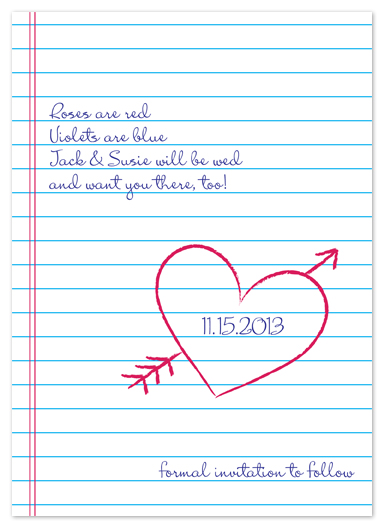 Roses are red
Violets are blue
Jack & Susie will be wed
and want you there, too!
11.15.2013
formal invitation to follow